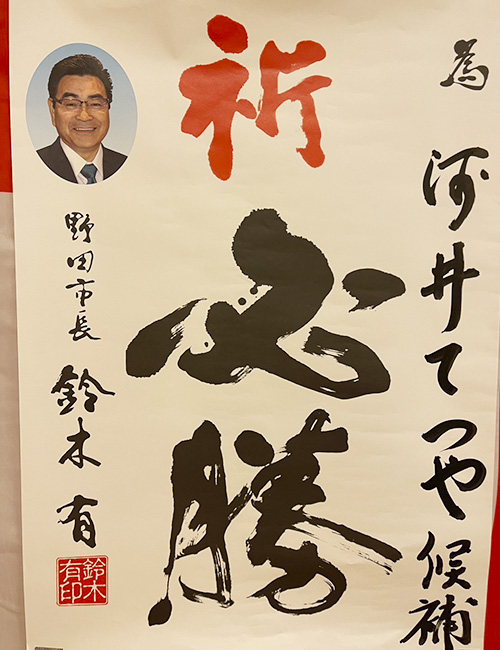 為 河井てつや候補
祈
必勝
野田市長 鈴木 有
鈴木
有印